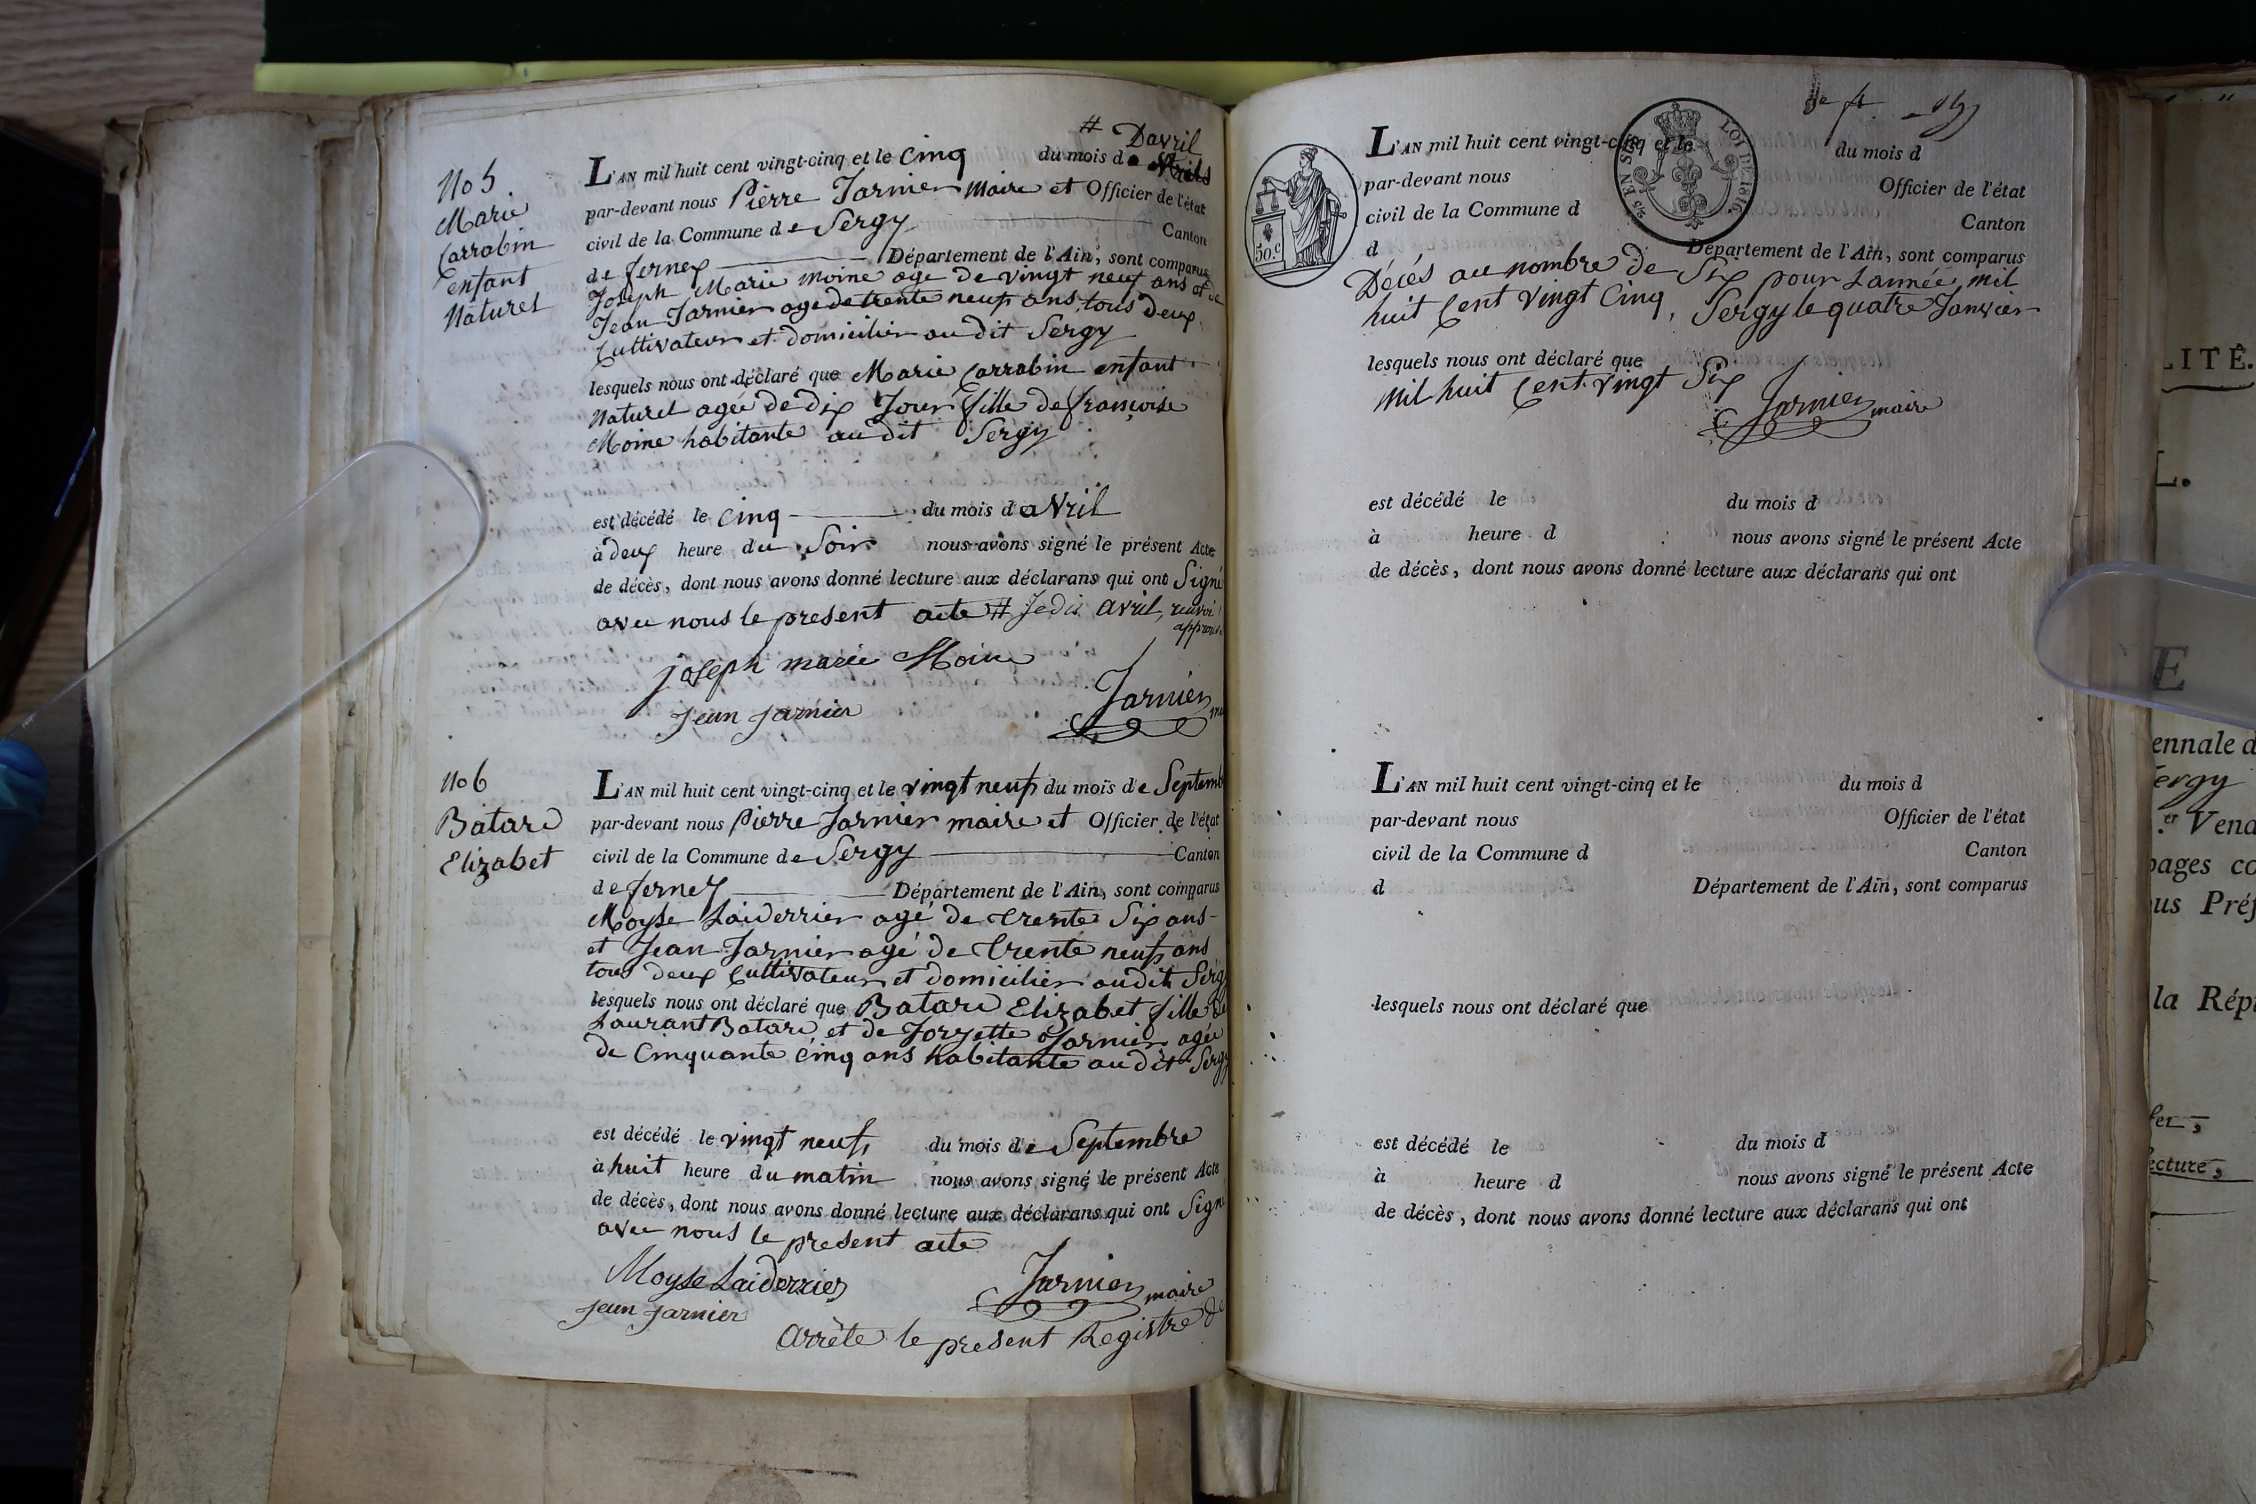 No 5.
Marie
Carrabin
enfant
Naturel
# Davril
L'AN mil huit cent vingt-cinq et le cinq du mois de
par-devant nous Pierre Jarnier maire et Officier de l'état
civil de la Commune de Sergy Canton
de ferney Département de l'Ain, sont comparus
Joseph Marie moine agé de vingt neuf ans et de
Jean Jarnier agé de trente neuf ans tous deux
Cultivateur et domicilier au dit Sergy
lesquels nous ont déclaré que Marie Carrabin enfant
Naturel agée de dix Jour fille de françoise
Moine habitante au dit Sergy
est décédé le cinq du mois d'avril
à deux heure du Soir nous avons signé le présent Acte
de décès, dont nous avons donné lecture aux déclarans qui ont Signé
avec nous le present acte # Je dis avril, renvoi
approuvé
joseph marie Moine
jean jarnier
Jarnier
No 6
Batard
Elizabet
L'AN mil huit cent vingt-cinq et le vingt neuf du mois de Septemb
par-devant nous Pierre Jarnier maire et Officier de l'état
civil de la Commune de Sergy Canton
de ferney Département de l'Ain, sont comparus
Moyse Laiderrier agé de trente Six ans
et Jean Jarnier agé de trente neuf ans
tous deux Cultivateur et domicilier au dit Sergy
lesquels nous ont déclaré que Batard Elizabet fille de
Laurant Batard et de Jorzette Jarnier agée
de Cinquante cinq ans habitante au dit Sergy
est décédé le vingt neuf du mois de Septembre
à huit heure du matin nous avons signé le présent Acte
de décès, dont nous avons donné lecture aux déclarans qui ont Signé
avec nous le present acte
Moyse Laiderrier
jean jarnier
Jarnier maire
Arrète le present Registre de
L'AN mil huit cent vingt-cinq et le du mois d
par-devant nous Officier de l'état
civil de la Commune d Canton
d Département de l'Ain, sont comparus
50.c
EN SUS
LOI DE 1816
Décés au nombre de Six pour Lannée mil
huit Cent vingt Cinq, Sergy le quatre Janvier
lesquels nous ont déclaré que
mil huit Cent vingt Six
Jarnier maire
est décédé le du mois d
à heure d nous avons signé le présent Acte
de décès, dont nous avons donné lecture aux déclarans qui ont
L'AN mil huit cent vingt-cinq et le du mois d
par-devant nous Officier de l'état
civil de la Commune d Canton
d Département de l'Ain, sont comparus
lesquels nous ont déclaré que
est décédé le du mois d
à heure d nous avons signé le présent Acte
de décès, dont nous avons donné lecture aux déclarans qui ont
LITÉ.
L.
E
ennale d
ergy
er Vend
pages co
ous Préf
la Répu
ecture,